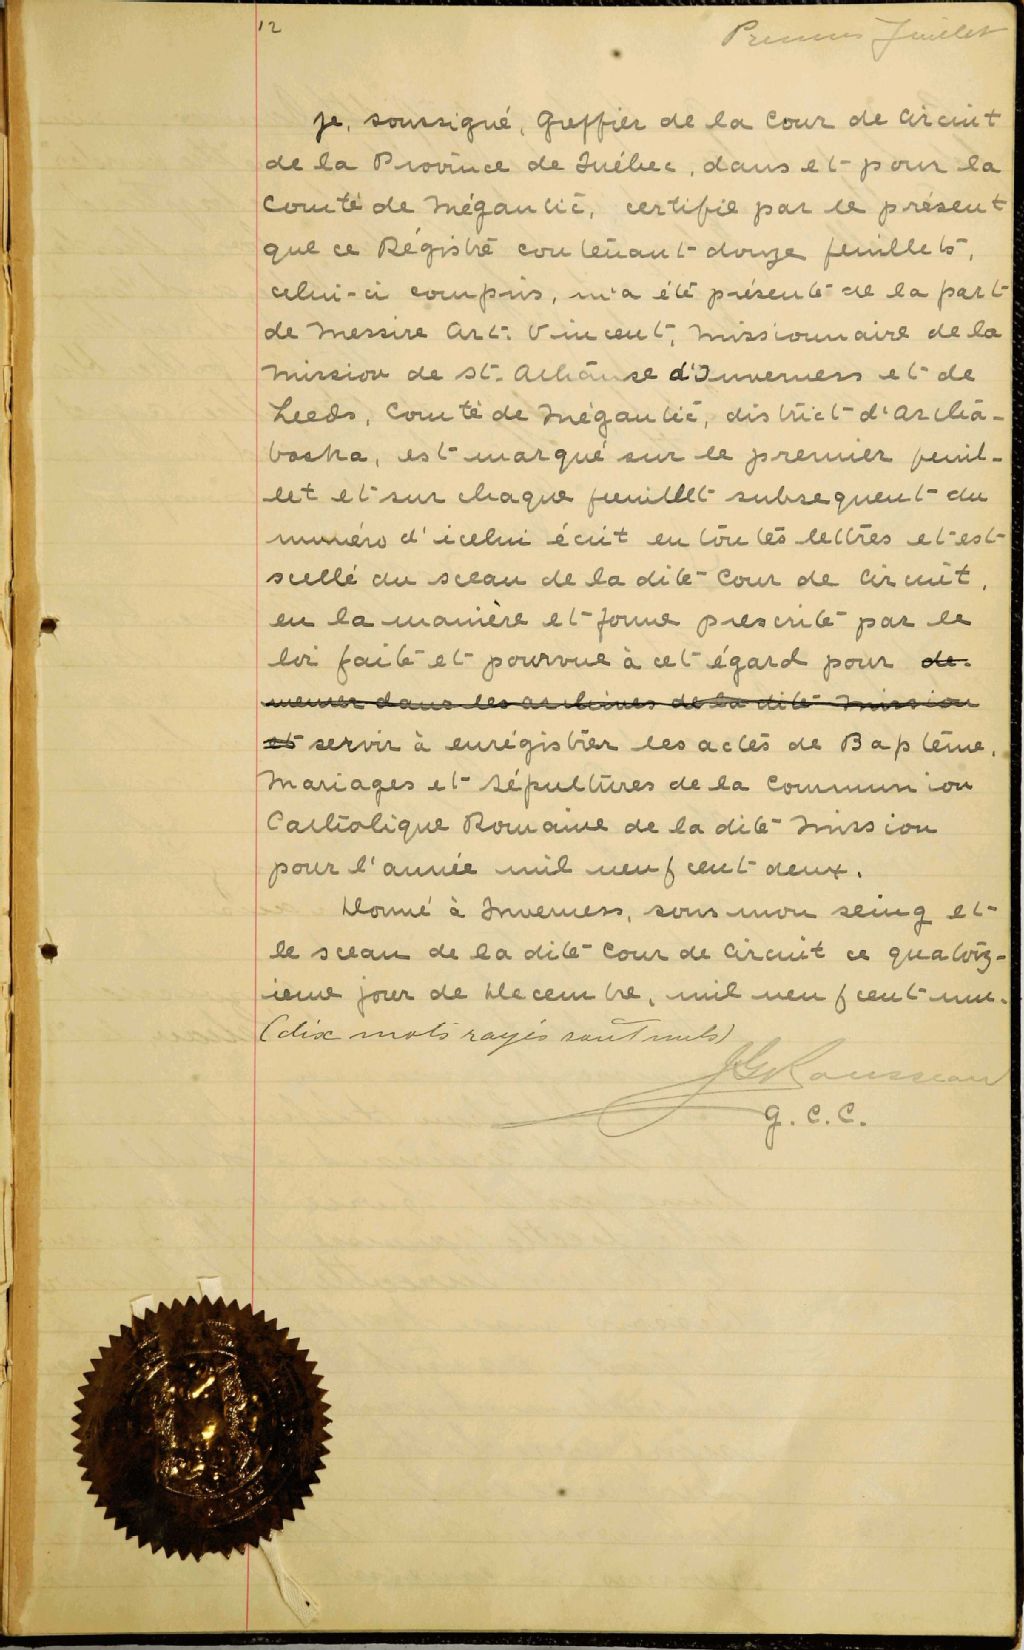 12
Premier feuillet
Je, soussigné, Greffier de la Cour de Circuit
de la Province de Québec, dans et pour la
Comté de Mégantic, certifie par le présent
que ce Régistre contenant douze feuillets,
celui-ci compris, m'a été présenté de la part
de Messire Art. Vincent, Missionnaire de la
Mission de St. Athanase d'Inverness et de
Leeds, Comté de Mégantic, district d'Artha-
baska, est marqué sur le premier feuil-
let et sur chaque feuillet subsequent du
numéro d'icelui écrit en toutes lettres et est
scellé du sceau de la dite Cour de Circuit,
en la manière et forme prescrite par le
loi faite et pourvue à cet égard pour de-
meurer dans les archives de la dite Mission
et servir à enrégistrer les actes de Baptême,
Mariages et Sépultures de la Communion
Catholique Romaine de la dite Mission
pour l'année mil neuf cent deux.
Donné à Inverness, sous mon seing et
le sceau de la dite Cour de Circuit ce quatorz-
ieme jour de Decembre, mil neuf cent un.
(dix mots rayés sont nuls)
JG Rousseau
G. C. C.